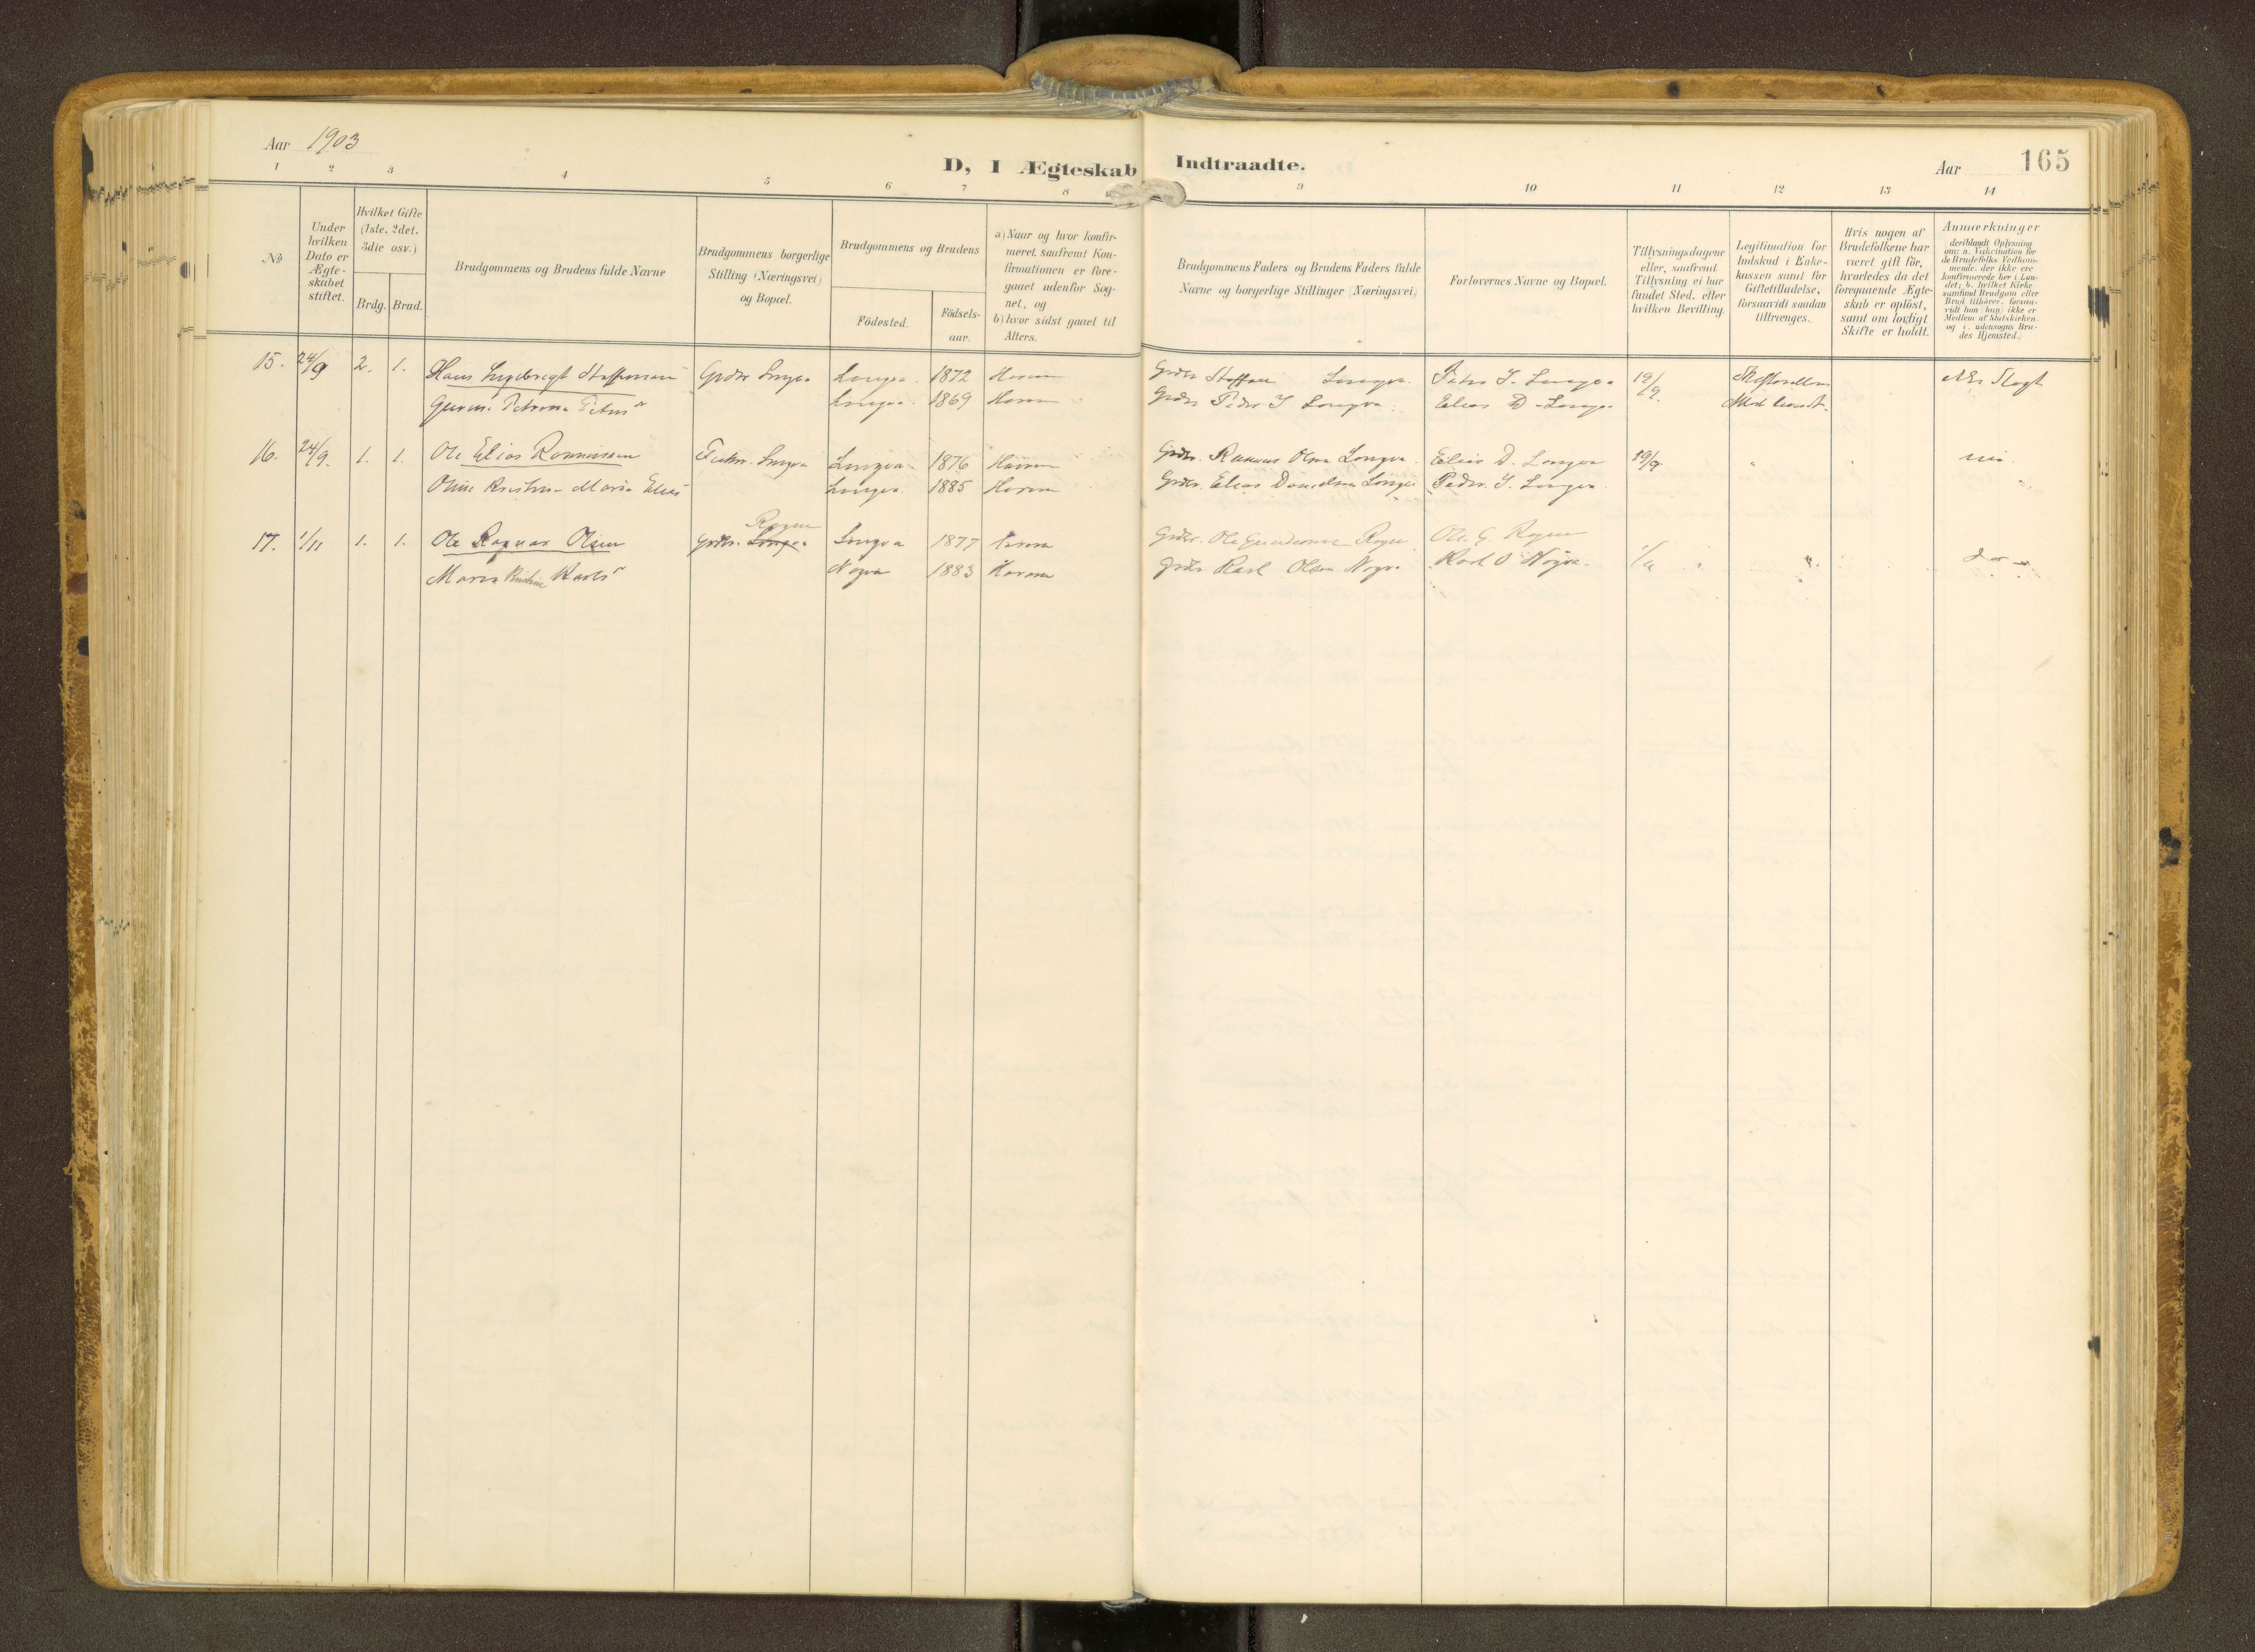 Aar 1903
D, I Ægteskab Indtraadte.
Aar 165
1 2 3 4 5 6 7 8 9 10 11 12 13 14
No
Under hvilken Dato er Ægte-skabet stiftet.
Hvilket Gifte (1ste, 2det, 3die osv.)
Brdg. Brud.
Brudgommens og Brudens fulde Navne
Brudgommens borgerlige Stilling (Næringsvei) og Bopæl.
Brudgommens og Brudens
Födested. Födsels-aar.
a) Naar og hvor konfir-meret, saafremt Kon-firmationen er fore-gaaet udenfor Sog-net, og
b) hvor sidst gaaet til Alters.
Brudgommens Faders og Brudens Faders fulde Navne og borgerlige Stillinger (Næringsvei)
Forlovernes Navne og Bopæl.
Tillysningsdagene eller, saafremt Tillysning ei har fundet Sted, efter hvilken Bevilling.
Legitimation for Indskud i Enke-kassen samt for Giftetilladelse, forsaavidt saadan tiltrænges.
Hvis nogen af Brudefolkene har været gift för, hvorledes da det foregaaende Ægte-skab er oplöst, samt om lovligt Skifte er holdt.
Anmærkninger
deriblandt Oplysning om: a. Vakcination for de Brudefolks Vedkom-mende, der ikke ere konfirmerede her i Lan-det; b. hvilket Kirke-samfund Brudgom eller Brud tilhörer, forsaa-vidt han (hun) ikke er Medlem af Statskirken, og c. udensogns Bru-des Hjemsted.)
15. 24/9 2. 1. Hans Ingebrigt Staffensen Grdbr Longva Longva 1872 Haram Grdbr Staffen Longva Peder I. Longva 19/9
Petrine Longva 1869 Haram Grdbr Peder I Longva Elias D. Longva
16. 24/9. 1. 1. Ole Elias Rasmussen Longva Longva 1876 Haram Grdbr. Rasmus Olsen Longva Elias D. Longva 19/9
Oline Maria Elias Longva 1885 Haram Grdbr. Elias Danielsen Longva Peder I. Longva
17. 1/11 1. 1. Ole Ragnar Olsen Grdbr. Longva Rogne Longva 1877 Haram Grdbr. Ole Gundersen Rogne Ole G. Rogne
Maria Kristine Karls Nogva 1883 Haram Grdbr Karl Olsen Nogva Karl O Nögva